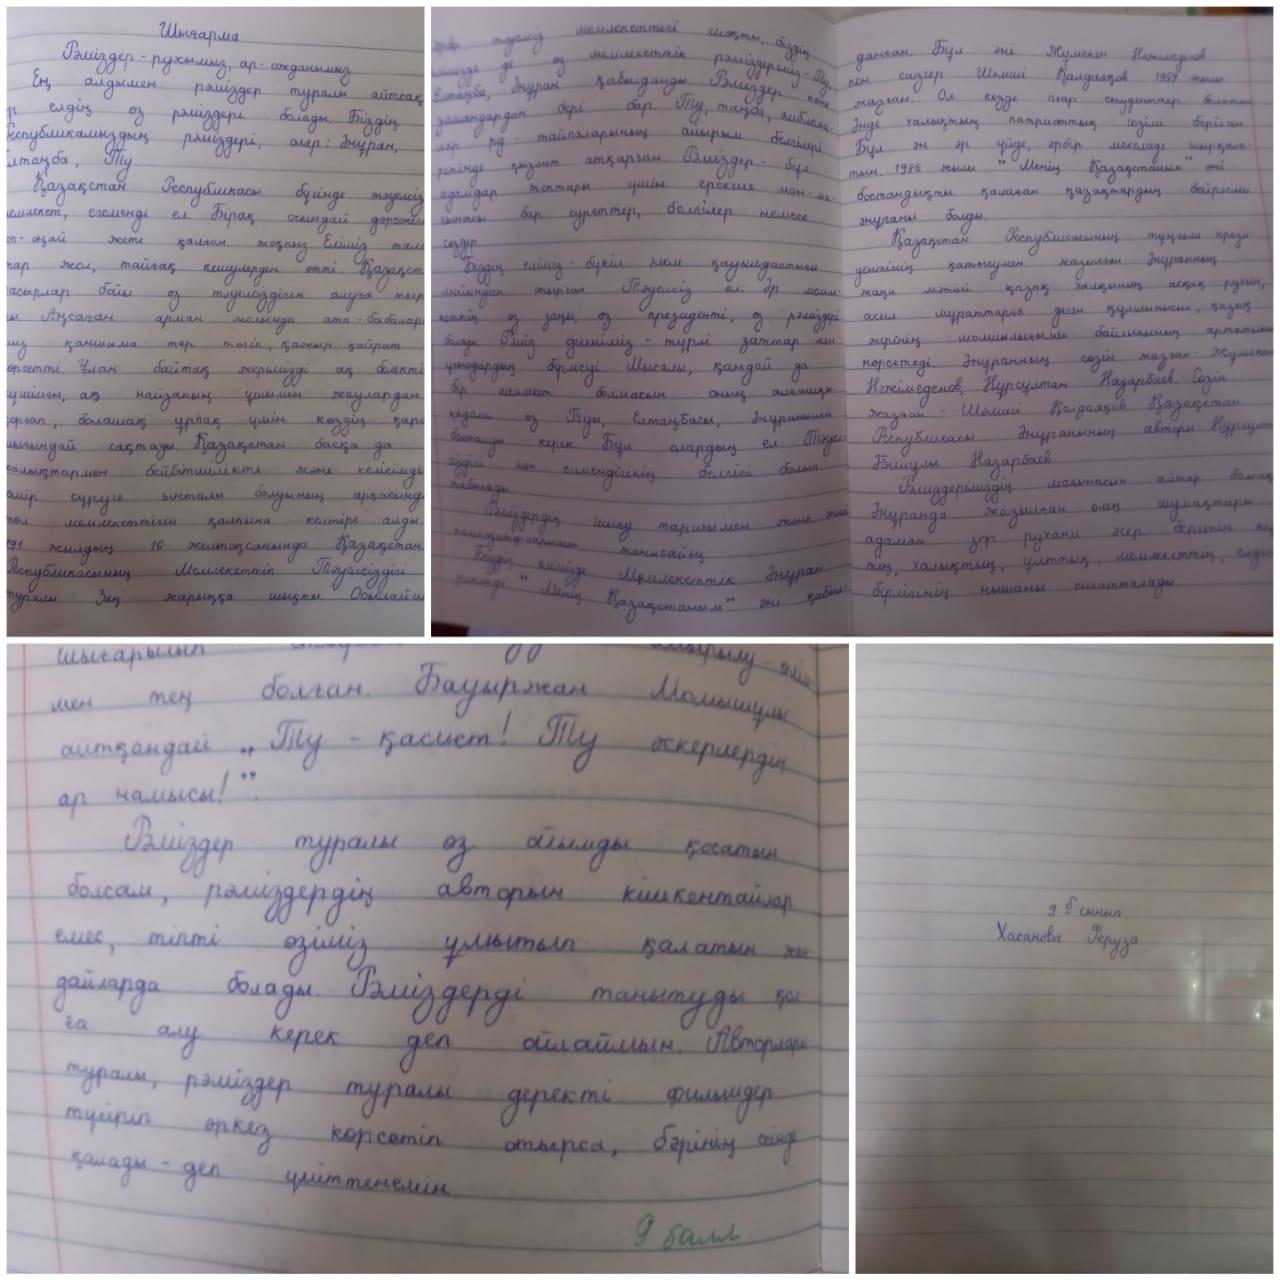 Шығарма
Рәміздер - рухымыз, ар-ожданымыз
Ең алдымен рәміздер туралы айтсақ,
р елдің өз рәміздері болады. Біздің
Республикамыздың рәміздері, олар: Әнұран,
лтаңба, Ту.
Қазақстан Республикасы бүгінде тәуелсіз
емлекет, егеменді ел. Бірақ осындай дәрежеге
оп-оңай жете қалған жоқпыз. Еліміз талай
тар жол, тайғақ кешулерден өтті. Қазақст
асырлар бойы өз тәуелсіздігін алуға тыр
Аңсаған арман жолында ата-бабалары
мыз қаншама тер төгіп, қажыр-қайрат
өрсетті. Ұлан байтақ жерімізді ақ білекті
үшімен, ақ найзаның ұшымен жаулардан
қорғап, болашақ ұрпақ үшін көздің қара
шығындай сақтады. Қазақстан басқа да
халықтармен бейбітшілікте және келісімде
өмір сүруге ынталы болуының арқасында
төл мемлекеттігін қалпына келтіре алды.
991 жылдың 16 желтоқсанында Қазақстан
Республикасының Мемлекеттік Тәуелсіздігі
туралы Заң жарыққа шықты. Осылайш
тәуелсіз мемлекеттегі сияқты, біздің
де өз мемлекеттік рәміздеріміз - Ту,
Елтаңба, Әнұран қабылданды. Рәміздер көне
замандардан бері бар. Ту, таңба, эмблема-
лар ру-тайпаларының айырым белгілері
ретінде қызмет атқарған. Рәміздер - бұл
адамдар топтары үшін ерекше мән-ма-
ғынасы бар суреттер, белгілер немесе
сөздер.
Біздің еліміз - бүкіл әлем қауымдастығы
мойындап отырған Тәуелсіз ел. Әр мем-
кеттің өз заңы, өз президенті, өз рәміздері
болады. Рәміз дегеніміз - түрлі заттар мен
ұғымдардың бірлесуі. Мысалы, қандай да
бір мемлекет болмасын оның алғашқы
қадамы өз Туы, Елтаңбасы, Әнұранынан
басталуы керек. Бұл олардың ел Тәуел-
сіздігі мен егемендігінің белгісі болып
табылады.
Рәміздердің шығу тарихымен және
танысайық.
Біздің елімізде Мемлекеттік Әнұран
ретінде "Менің Қазақстаным" әні қабыл-
данған. Бұл әні Жұмекен Нәжімеденов
пен сазгер Шәмші Қалдаяқов 1959 жылы
жазған. Ол кезде олар студенттер болатын.
Әнде халықтың патриоттық сезімі берілген.
Бұл ән әр үйде, әрбір мекемеде шырқала-
тын. 1986 жылы "Менің Қазақстаным" әні
бостандықты қалаған қазақтардың бейресми
әнұраны болды.
Қазақстан Республикасының тұңғыш прези-
дентінің қатысумен жазылған Әнұранның
жаңа мәтіні қазақ халқының асқақ рухын,
асыл мұраттарға деген құлшынысын, қазақ
жерінің молшылығымен байлығының артатынын
көрсетеді. Әнұранның сөзін жазған - Жұмекен
Нәжімеденов, Нұрсұлтан Назарбаев. Сөзін
жазған - Шәмші Қалдаяқов. Қазақстан
Республикасы Әнұранының авторы - Нұрсұлтан
Әбішұлы Назарбаев.
Рәміздеріміздің мағынасын айтар болсақ,
Әнұранда жазылған өлең шумақтары
адамға зор рухани әсер беретін
тің, халықтың, ұлттық, мемлекеттің, елдің
бірлігінің нышаны сипатталады.
шығарылып
мен тең болған. Бауыржан Момышұлы
айтқандай „Ту - қасиет! Ту әскерлердің
ар намысы!".
Рәміздер туралы өз ойымды қосатын
болсам, рәміздердің авторын кішкентайлар
емес, тіпті өзіміз ұмытып қалатын жағ-
дайларда болады. Рәміздерді танытуды қол-
ға алу керек деп ойлаймын. Авторлары
туралы, рәміздер туралы деректі фильмдер
түсіріп әркез көрсетіп отырса, бәрінің есінде
қалады - деп үміттенемін.
9 балл.
9 б сынып
Хасанова Феруза